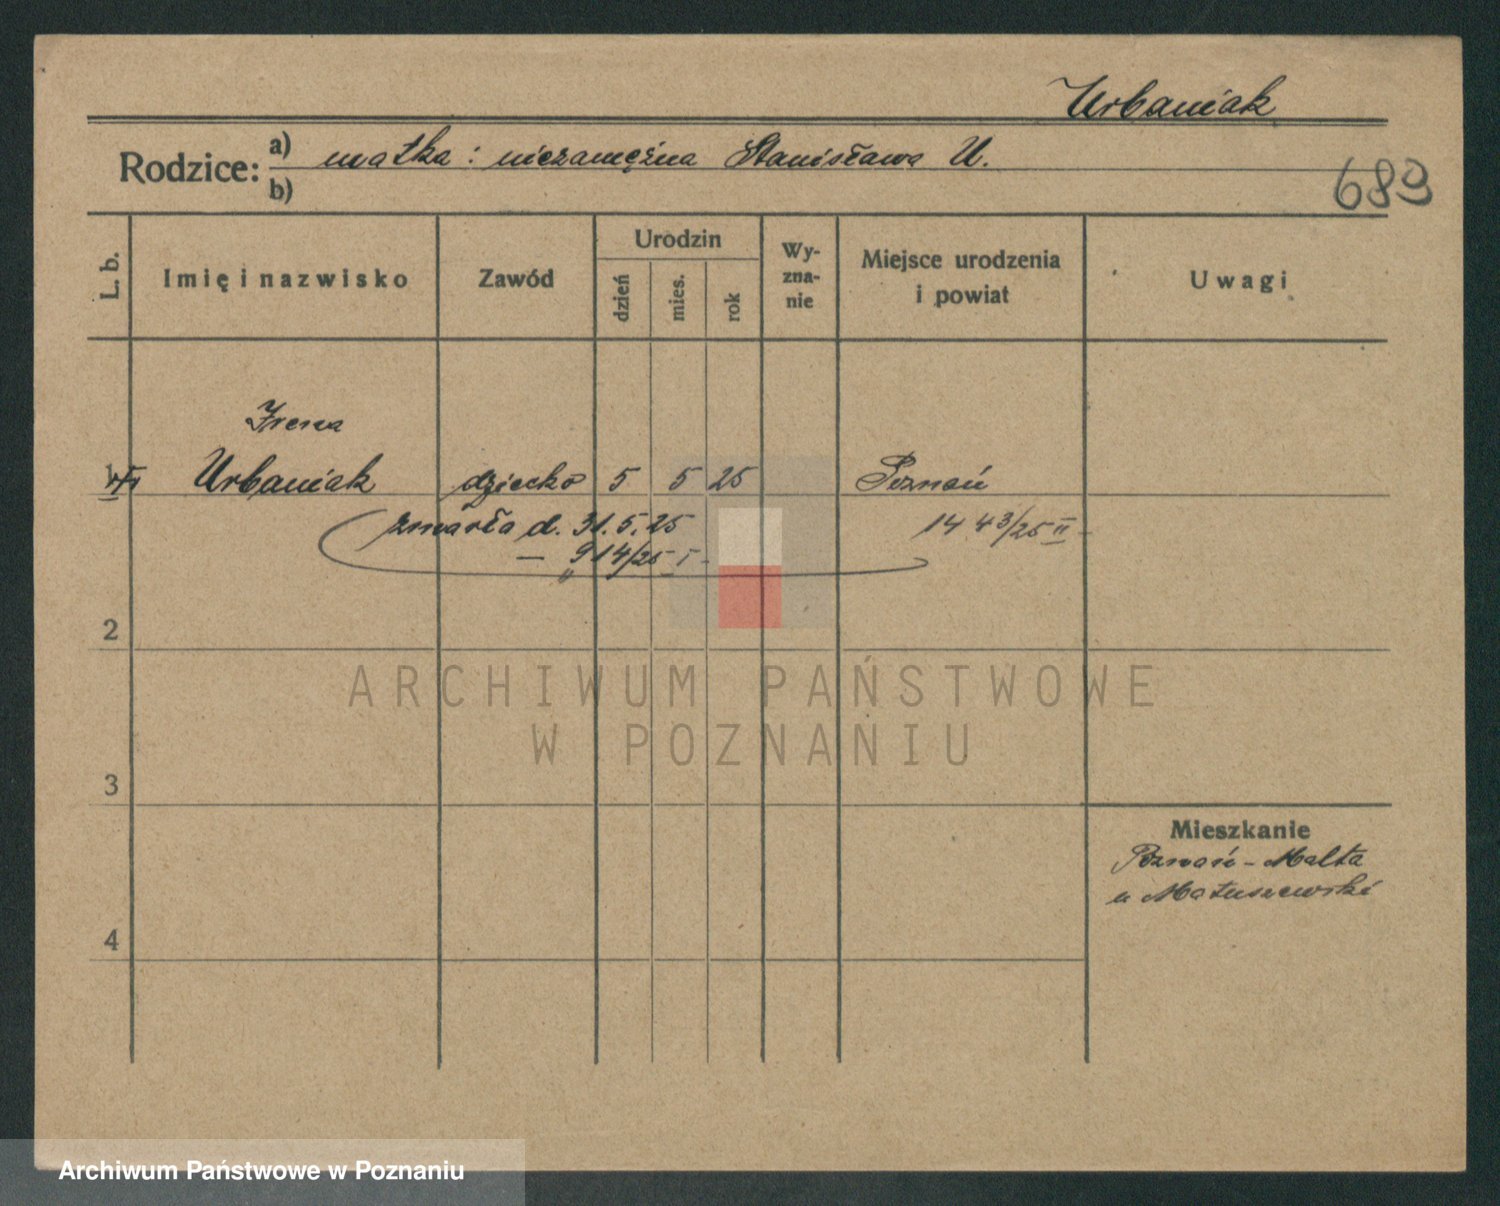 Urbaniak
Rodzice: a) matka: niezamężna Stanisława U.
b)
683
L. b.
Imię i nazwisko
Zawód
Urodzin
dzień
mies.
rok
Wy-
zna-
nie
Miejsce urodzenia
i powiat
Uwagi
Irena
Urbaniak dziecko 5 5 25 Poznań
zmarła d. 31.5.25
1443/25 II -
— " 914/25 I -
2
3
4
Mieszkanie
Poznań - Malta
u Matuszewski
ARCHIWUM PAŃSTWOWE
W POZNANIU
Archiwum Państwowe w Poznaniu